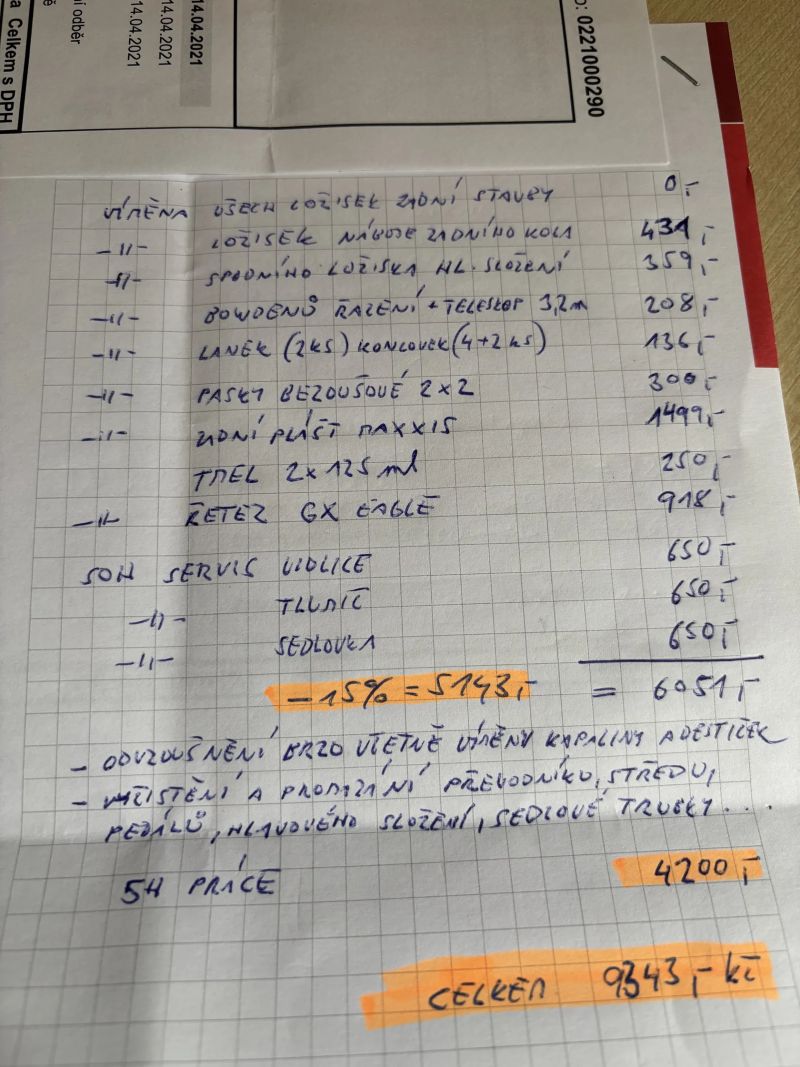 a Celkem s DPH
ní odběr
14.04.2021
14.04.2021
14.04.2021
0221000290
VÍMĚNA VŠECH LOŽISEK ZADNÍ STAVBY 0,-
-11- LOŽISEK NÁBOJE ZADNÍHO KOLA 431,-
-11- SPODNÍHO LOŽISKA HL. SLOŽENÍ 359,-
-11- BOWDENŮ ŘAZENÍ + TELESKOP 3,2m 208,-
-11- LANEK (2KS) KONCOVEK (4+2KS) 136,-
-11- PASKY BEZDUŠOVÉ 2x2 300,-
-11- ZADNÍ PLÁŠŤ MAXXIS 1499,-
TMEL 2x125ml 250,-
-11- ŘETEZ GX EAGLE 918,-
50H SERVIS VIDLICE 650,-
-11- TLUMIČ 650,-
-11- SEDLOVKA 650,-
-15% = 5143,- = 6051,-
- ODVZDUŠNĚNÍ BRZD VČETNĚ VÍMĚNY KAPALINY A DESTIČEK
- VYČIŠTĚNÍ A PROMAZÁNÍ PŘEVODNÍKU, STŘEDU,
PEDÁLŮ, HLAVOVÉHO SLOŽENÍ, SEDLOVÉ TRUBKY...
5H PRÁCE 4200,-
CELKEM 9343,- KČ